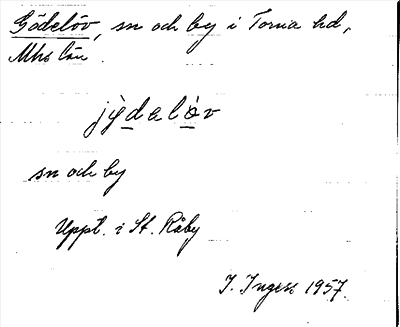 Gödelöv, sn och by i Torna hd,
Mhs län.
jỳdalòv
sn och by
Uppt. i St. Råby
I. Ingers 1957.